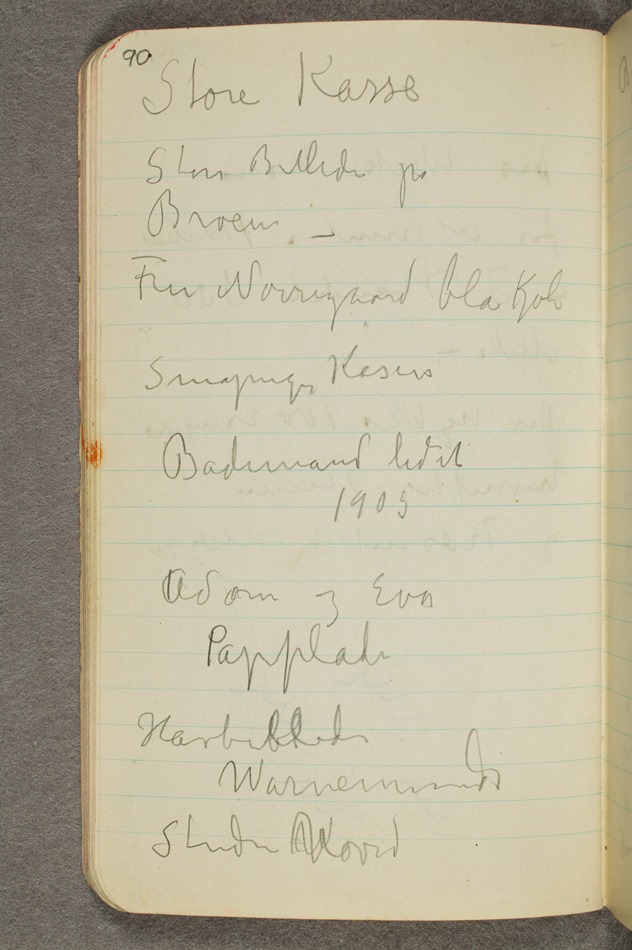 90
Store Kasse
Store Billede på
Broen –
Fru Norregaard blå Kjole
Småpiger Kasse
Bademand lidit
1905
Adam og Eva
Papplade
Havbillede
Warnemünde
Studie Hoved